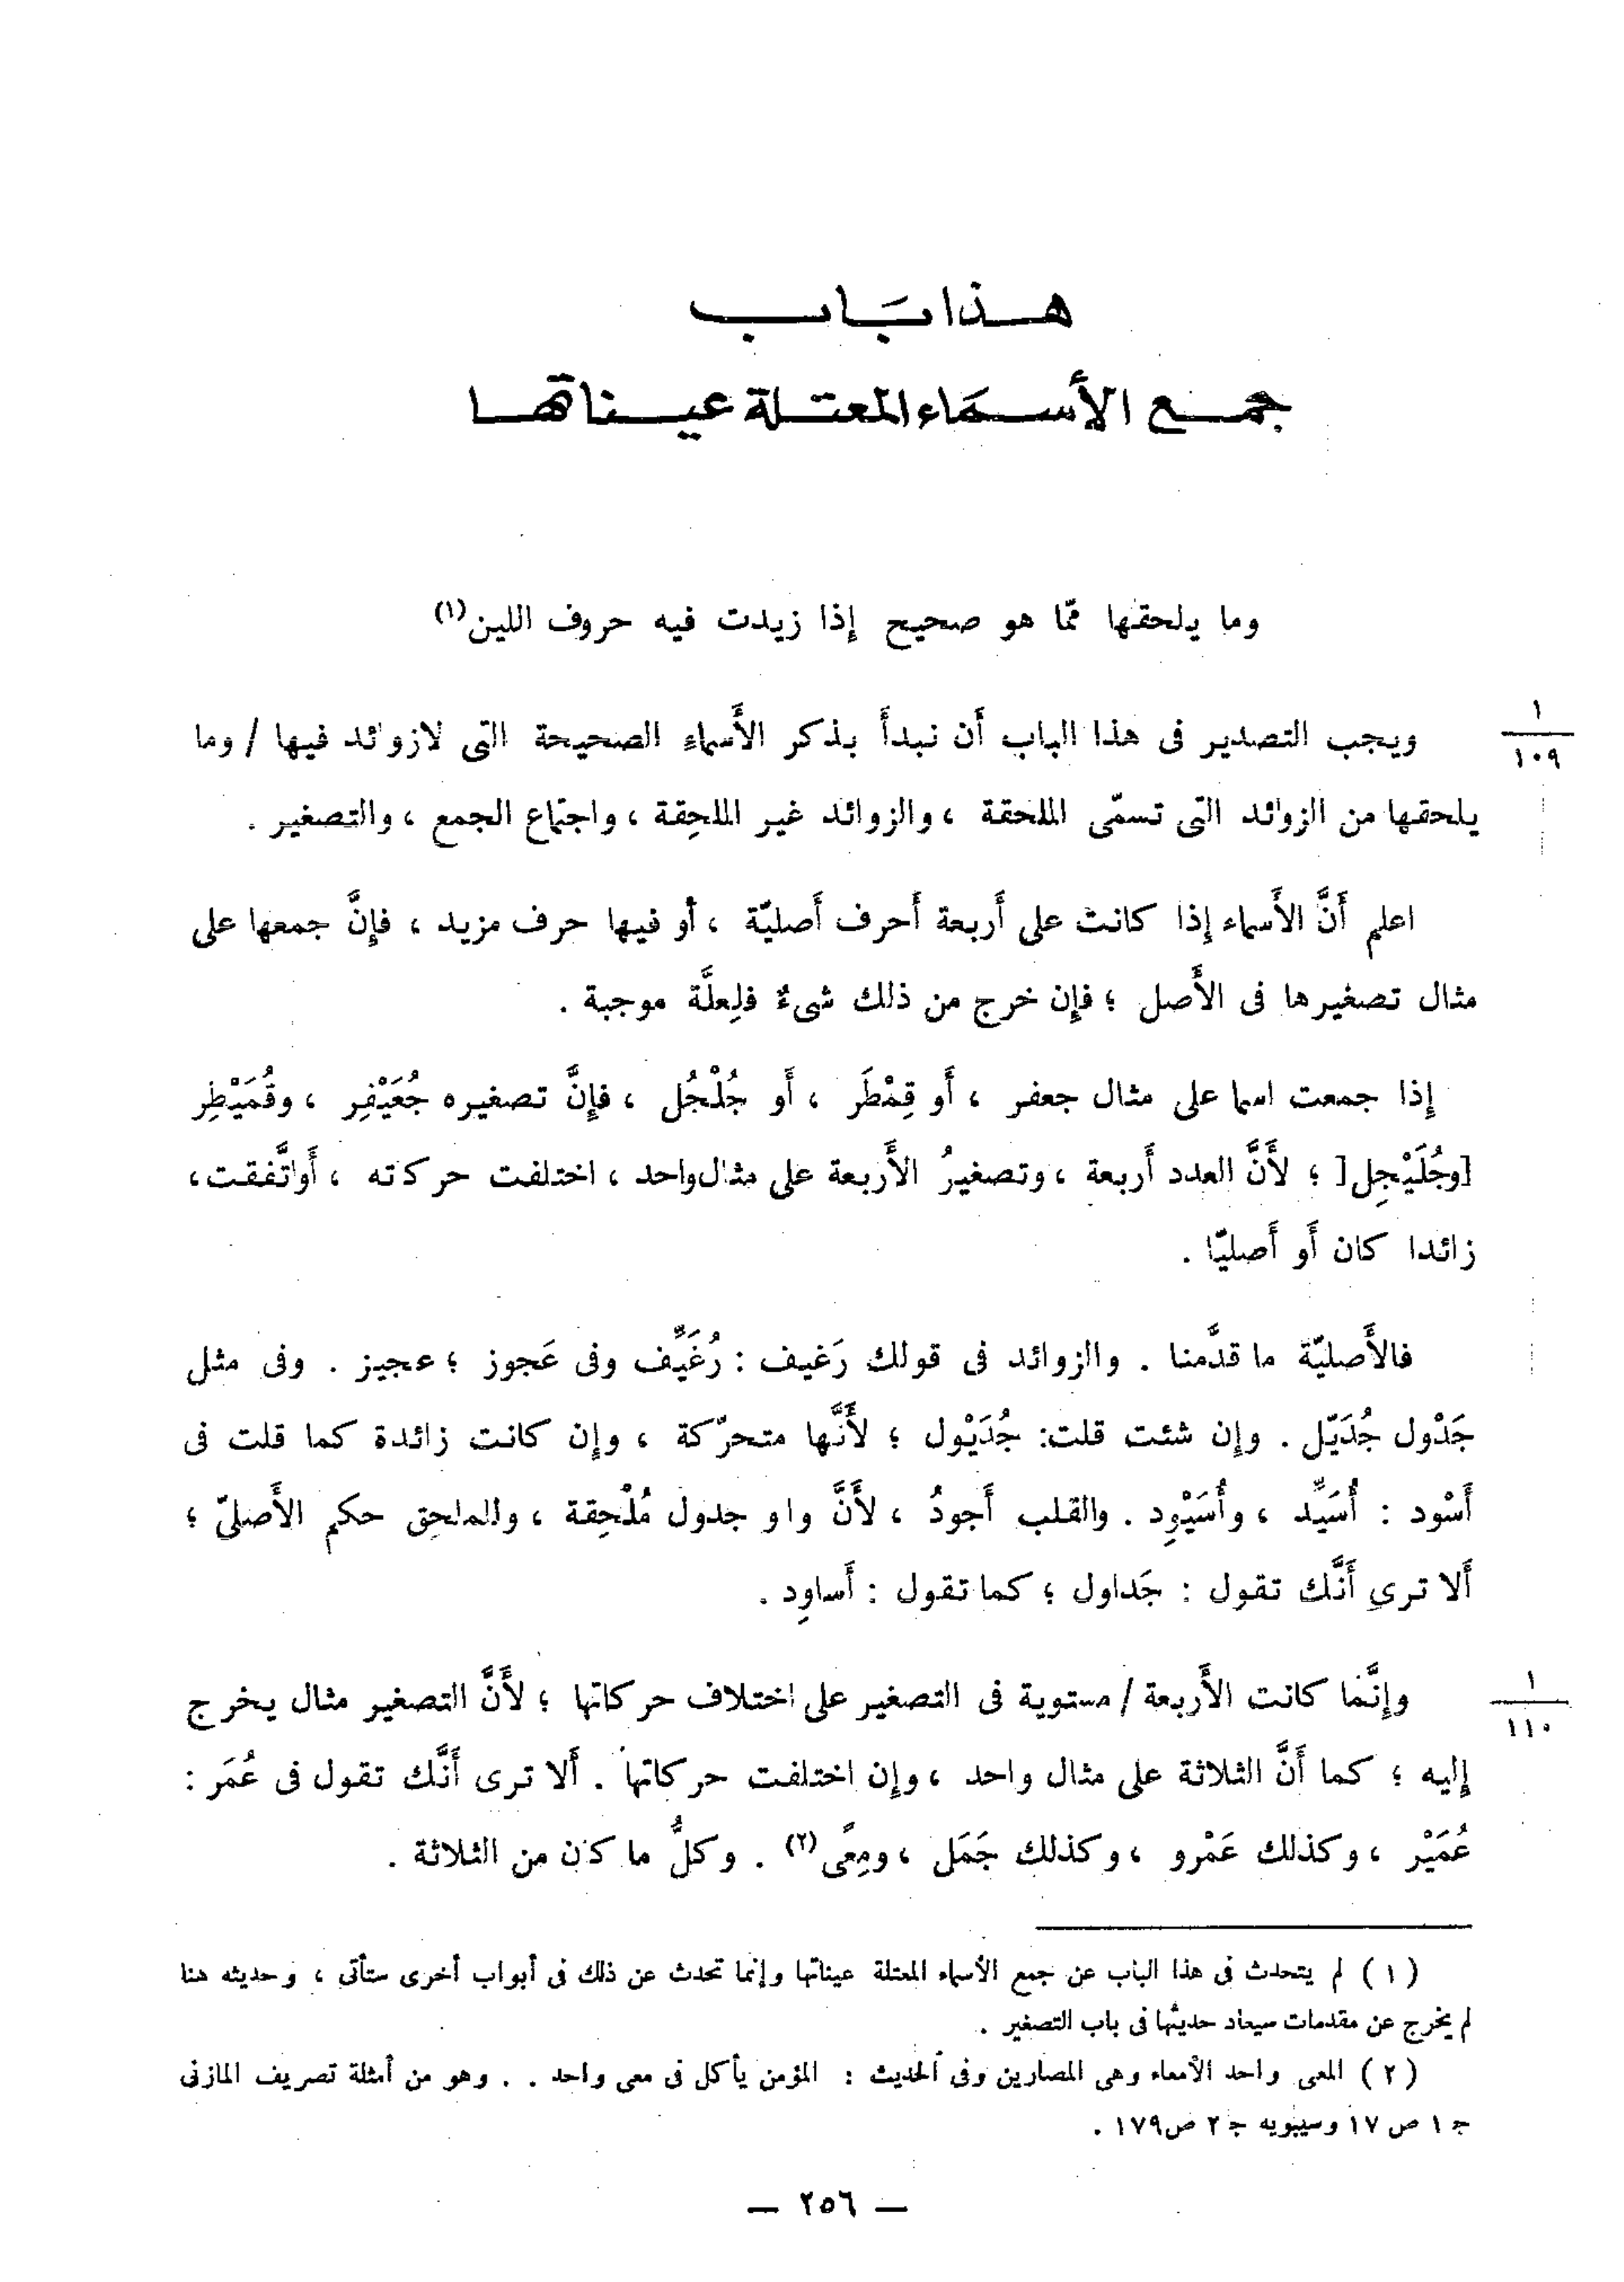 هذا بَاب
جمع الأسمَاء المعتلة عيناتها
وما يلحقها ممّا هو صحيح إذا زيدت فيه حروف اللين(١)
١
١٠٩
ويجب التصدير فى هذا الباب أَن نبدأَ بذكر الأَسماء الصحيحة التى لا زوائد فيها / وما
يلحقها من الزوائد التى تسمّى الملحقة ، والزوائد غير الملحِقة ، واجتماع الجمع ، والتصغير .
اعلم أَنَّ الأَسماء إذا كانت على أَربعة أَحرف أَصليّة ، أَو فيها حرف مزيد ، فإنَّ جمعها على
مثال تصغيرها فى الأَصل ؛ فإن خرج من ذلك شىءٌ فلِعلَّة موجبة .
إذا جمعت اسما على مثال جعفر ، أَو قِمْطَر ، أَو جُلْجُل ، فإنَّ تصغيره جُعَيْفِر ، وقُمَيْطِر
[وجُلَيْجِل[ ؛ لأَنَّ العدد أَربعة ، وتصغيرُ الأَربعة على مثال واحد ، اختلفت حركاته ، أَو اتَّفقت ،
زائدا كان أَو أَصليّا .
فالأَصليّة ما قدَّمنا . والزوائد فى قولك رَغيف : رُغَيِّف وفى عَجوز ؛ عجيز . وفى مثل
جَدْول جُدَيّل . وإن شئت قلت: جُدَيْول ؛ لأَنَّها متحرّكة ، وإن كانت زائدة كما قلت فى
أَسْود : أُسَيِّد ، وأُسَيْوِد . والقلب أَجودُ ، لأَنَّ واو جدول مُلْحِقة ، وللملحِق حكم الأَصلىّ ؛
أَلا ترى أَنَّك تقول : جَداول ؛ كما تقول : أَساوِد .
١
١١٠
وإنَّما كانت الأَربعة / مستوية فى التصغير على اختلاف حركاتها ؛ لأَنَّ التصغير مثال يخرج
إليه ؛ كما أَنَّ الثلاثة على مثال واحد ، وإن اختلفت حركاتها . أَلا ترى أَنَّك تقول فى عُمَر :
عُمَيْر ، وكذلك عَمْرو ، وكذلك جَمَل ، ومِعًى(٢) . وكلُّ ما كان من الثلاثة .
( ١ ) لم يتحدث فى هذا الباب عن جمع الأسماء المعتلة عيناتها وإنما تحدث عن ذلك فى أبواب أخرى ستأتى ، وحديثه هنا
لم يخرج عن مقدمات سيعاد حديثها فى باب التصغير .
( ٢ ) المعى واحد الأمعاء وهى المصارين وفى الحديث : المؤمن يأكل فى معى واحد . . وهو من أمثلة تصريف المازنى
ج ١ ص ١٧ وسيبويه ج ٢ ص ١٧٩ .
— ٢٥٦ —